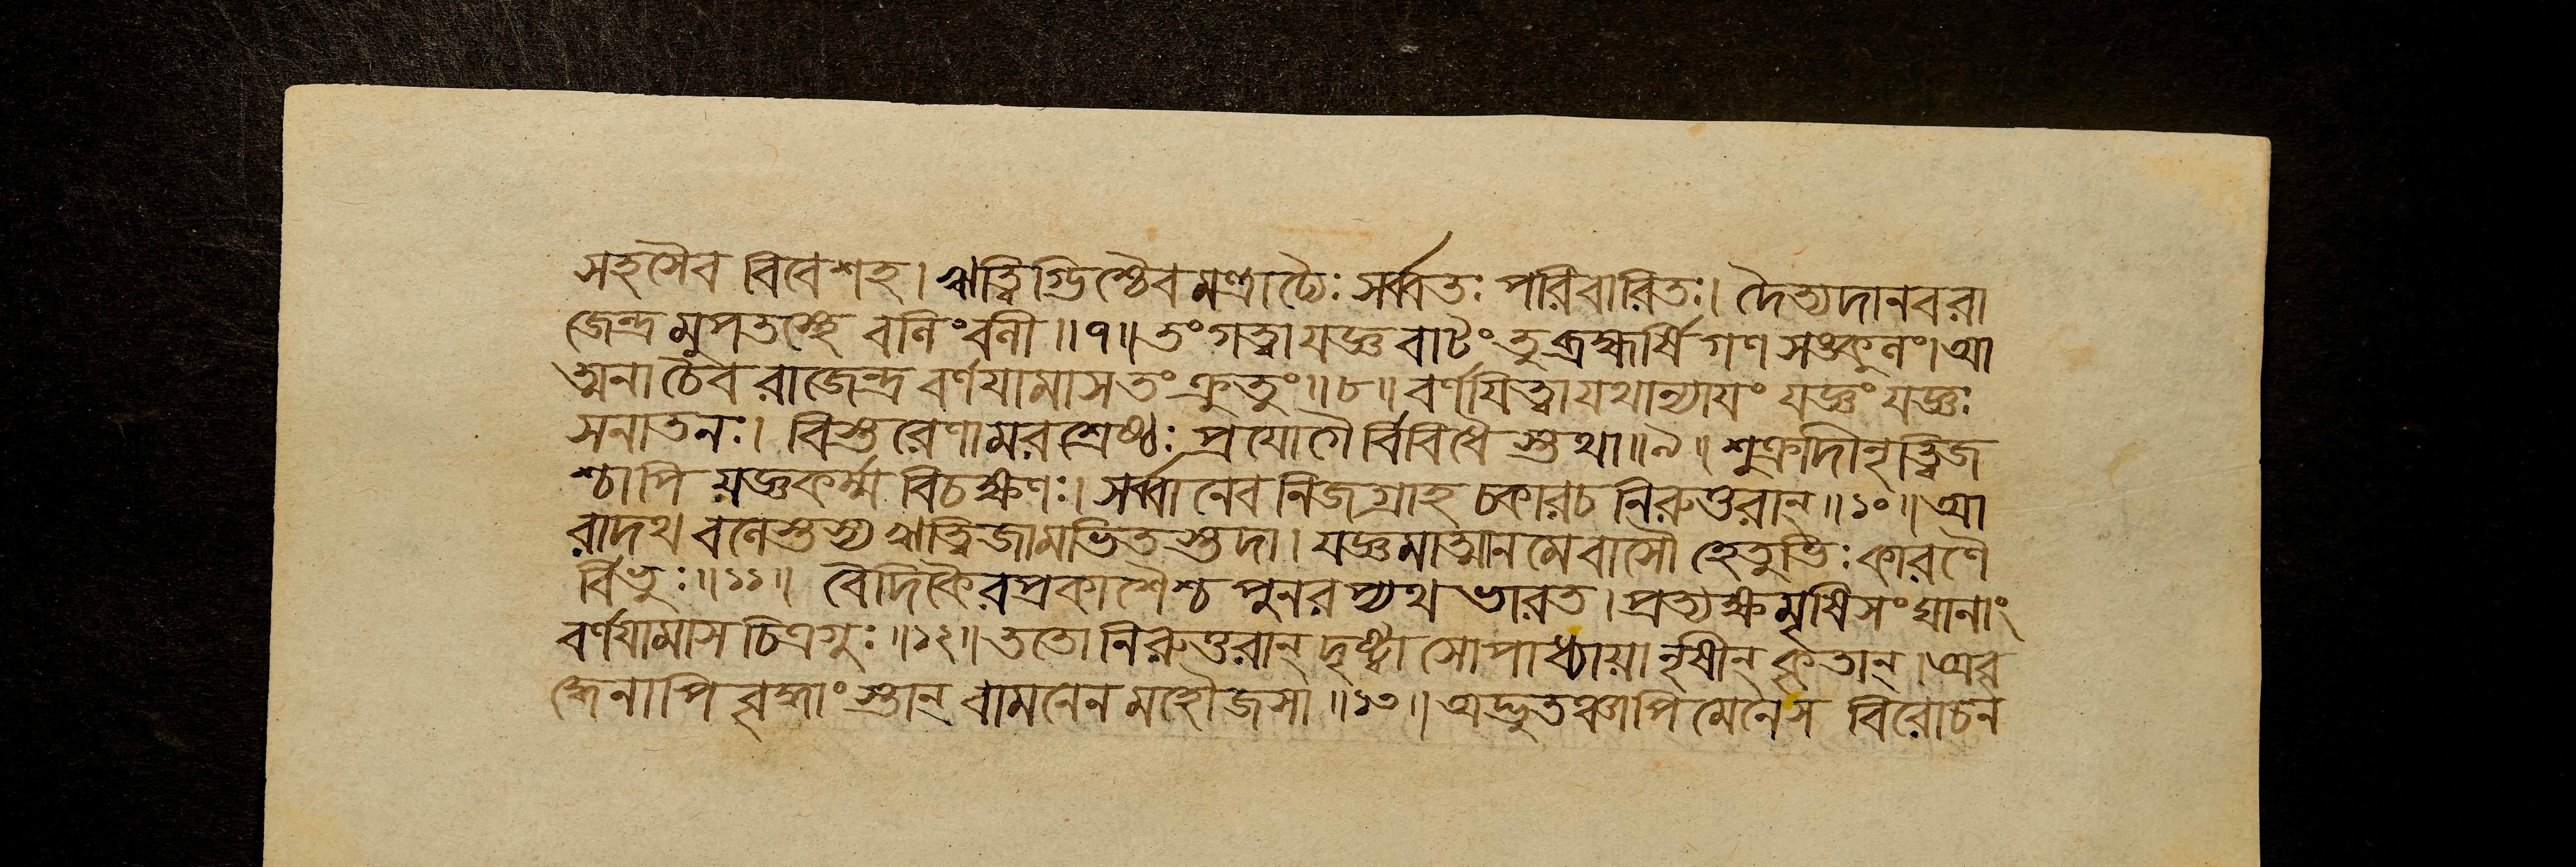 সহসৈব বিবেশহ। ঋত্বিগ্ভিশ্চৈব মন্ত্রাঢ্যৈঃ সর্ব্বতঃ পরিবারিতঃ। দৈত্যদানবরা
জেন্দ্র মুপতস্থে বলিংবলী॥৭॥ তং গত্বা যজ্ঞ বাটং তু ব্রহ্মর্ষি গণ সঙ্কুলং। আ
ত্মনা চৈব রাজেন্দ্র বর্ণযামাস তং ক্রুতুং॥৮॥ বর্ণযিত্বা যথান্যাযং যজ্ঞং যজ্ঞঃ
সনাতনঃ। বিস্তরেণামর শ্রেষ্ঠঃ প্রযোগৈ র্বিবিধৈ স্তথা॥৯॥ শুক্রাদীনৃত্বিজ
শ্চাপি যজ্ঞকর্ম্ম বিচক্ষণঃ। সর্ব্বানেব নিজগ্রাহ চকারচ নিরুত্তরান্॥১০॥ আ
রাদথ বলেস্তস্য ঋত্বিজামভিতস্তদা। যজ্ঞমাত্মানমেবাসৌ হেতুভিঃ কারণৈ
র্বিভুঃ॥১১॥ বৈদিকৈরপ্রকাশৈশ্চ পুনরপ্যথ ভারত। প্রত্যক্ষমৃষিসংঘানাং
বর্ণযামাস চিত্রগুঃ॥১২॥ ততো নিরুত্তরান্ দৃষ্ট্বা সোপাধ্যাযানৃষীন্ কৃতান্। অব্র
হ্মেনাপি বৃহ্মাংস্তান্ বামনেন মহৌজসা॥১৩॥ অদ্ভুতঞ্চাপি মেনেস বিরোচন